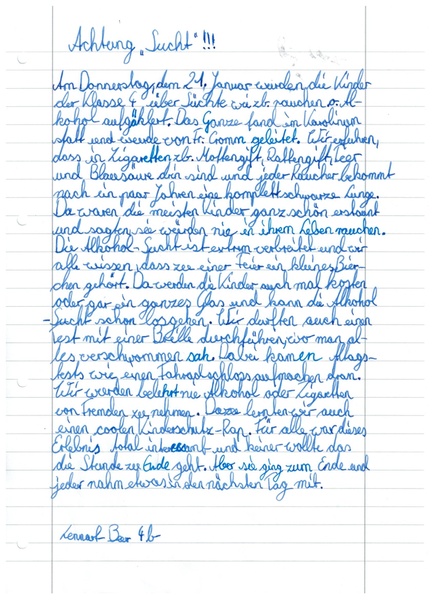 Achtung „Sucht"!!!
Am Donnerstag, dem 21. Januar wurden die Kinder
der Klasse 4 über Süchte wie z.b. rauchen o. Al-
kohol aufgeklert. Das Ganze fand im Karolinum
statt und wurde von Fr. Comm geleitet. Wir erfuhren,
dass in Zigaretten z.b. Mottengift, Rattengift, Teer
und Blausäure drin sind und jeder Raucher bekommt
nach ein paar Jahren eine komplett schwarze Lunge.
Da waren die meisten Kinder ganz schön erstaunt
und sagten sie würden nie in ihrem Leben rauchen.
Die Alkohol-Sucht ist extrem vertreitet und wir
alle wissen, dass zee einer Feier ein kleines Bier-
chen gehört. Da werden die Kinder auch mal kosten
oder gar ein ganzes Glas und kann die Alkohol
-Sucht schon losgehen. Wir durften auch einen
test mit einer Brille durchführen, wor man al-
les verschwommen sah. Dabei kamen Altags-
tests wie einen Fahrad schloss aufmachen dran.
Wir wurden belehrt nie Alkohol oder Zigaretten
von fremden zu nehmen. Dazu lernten wir auch
einen coolen Kinderschutz-Rap. Für alle war dieses
Erlebnis total interessant und keiner wollte das
die Stunde zu Ende geht. Aber sie ging zum Ende und
jeder nahm etwas in den nächsten Tag mit.
Lennart 4b